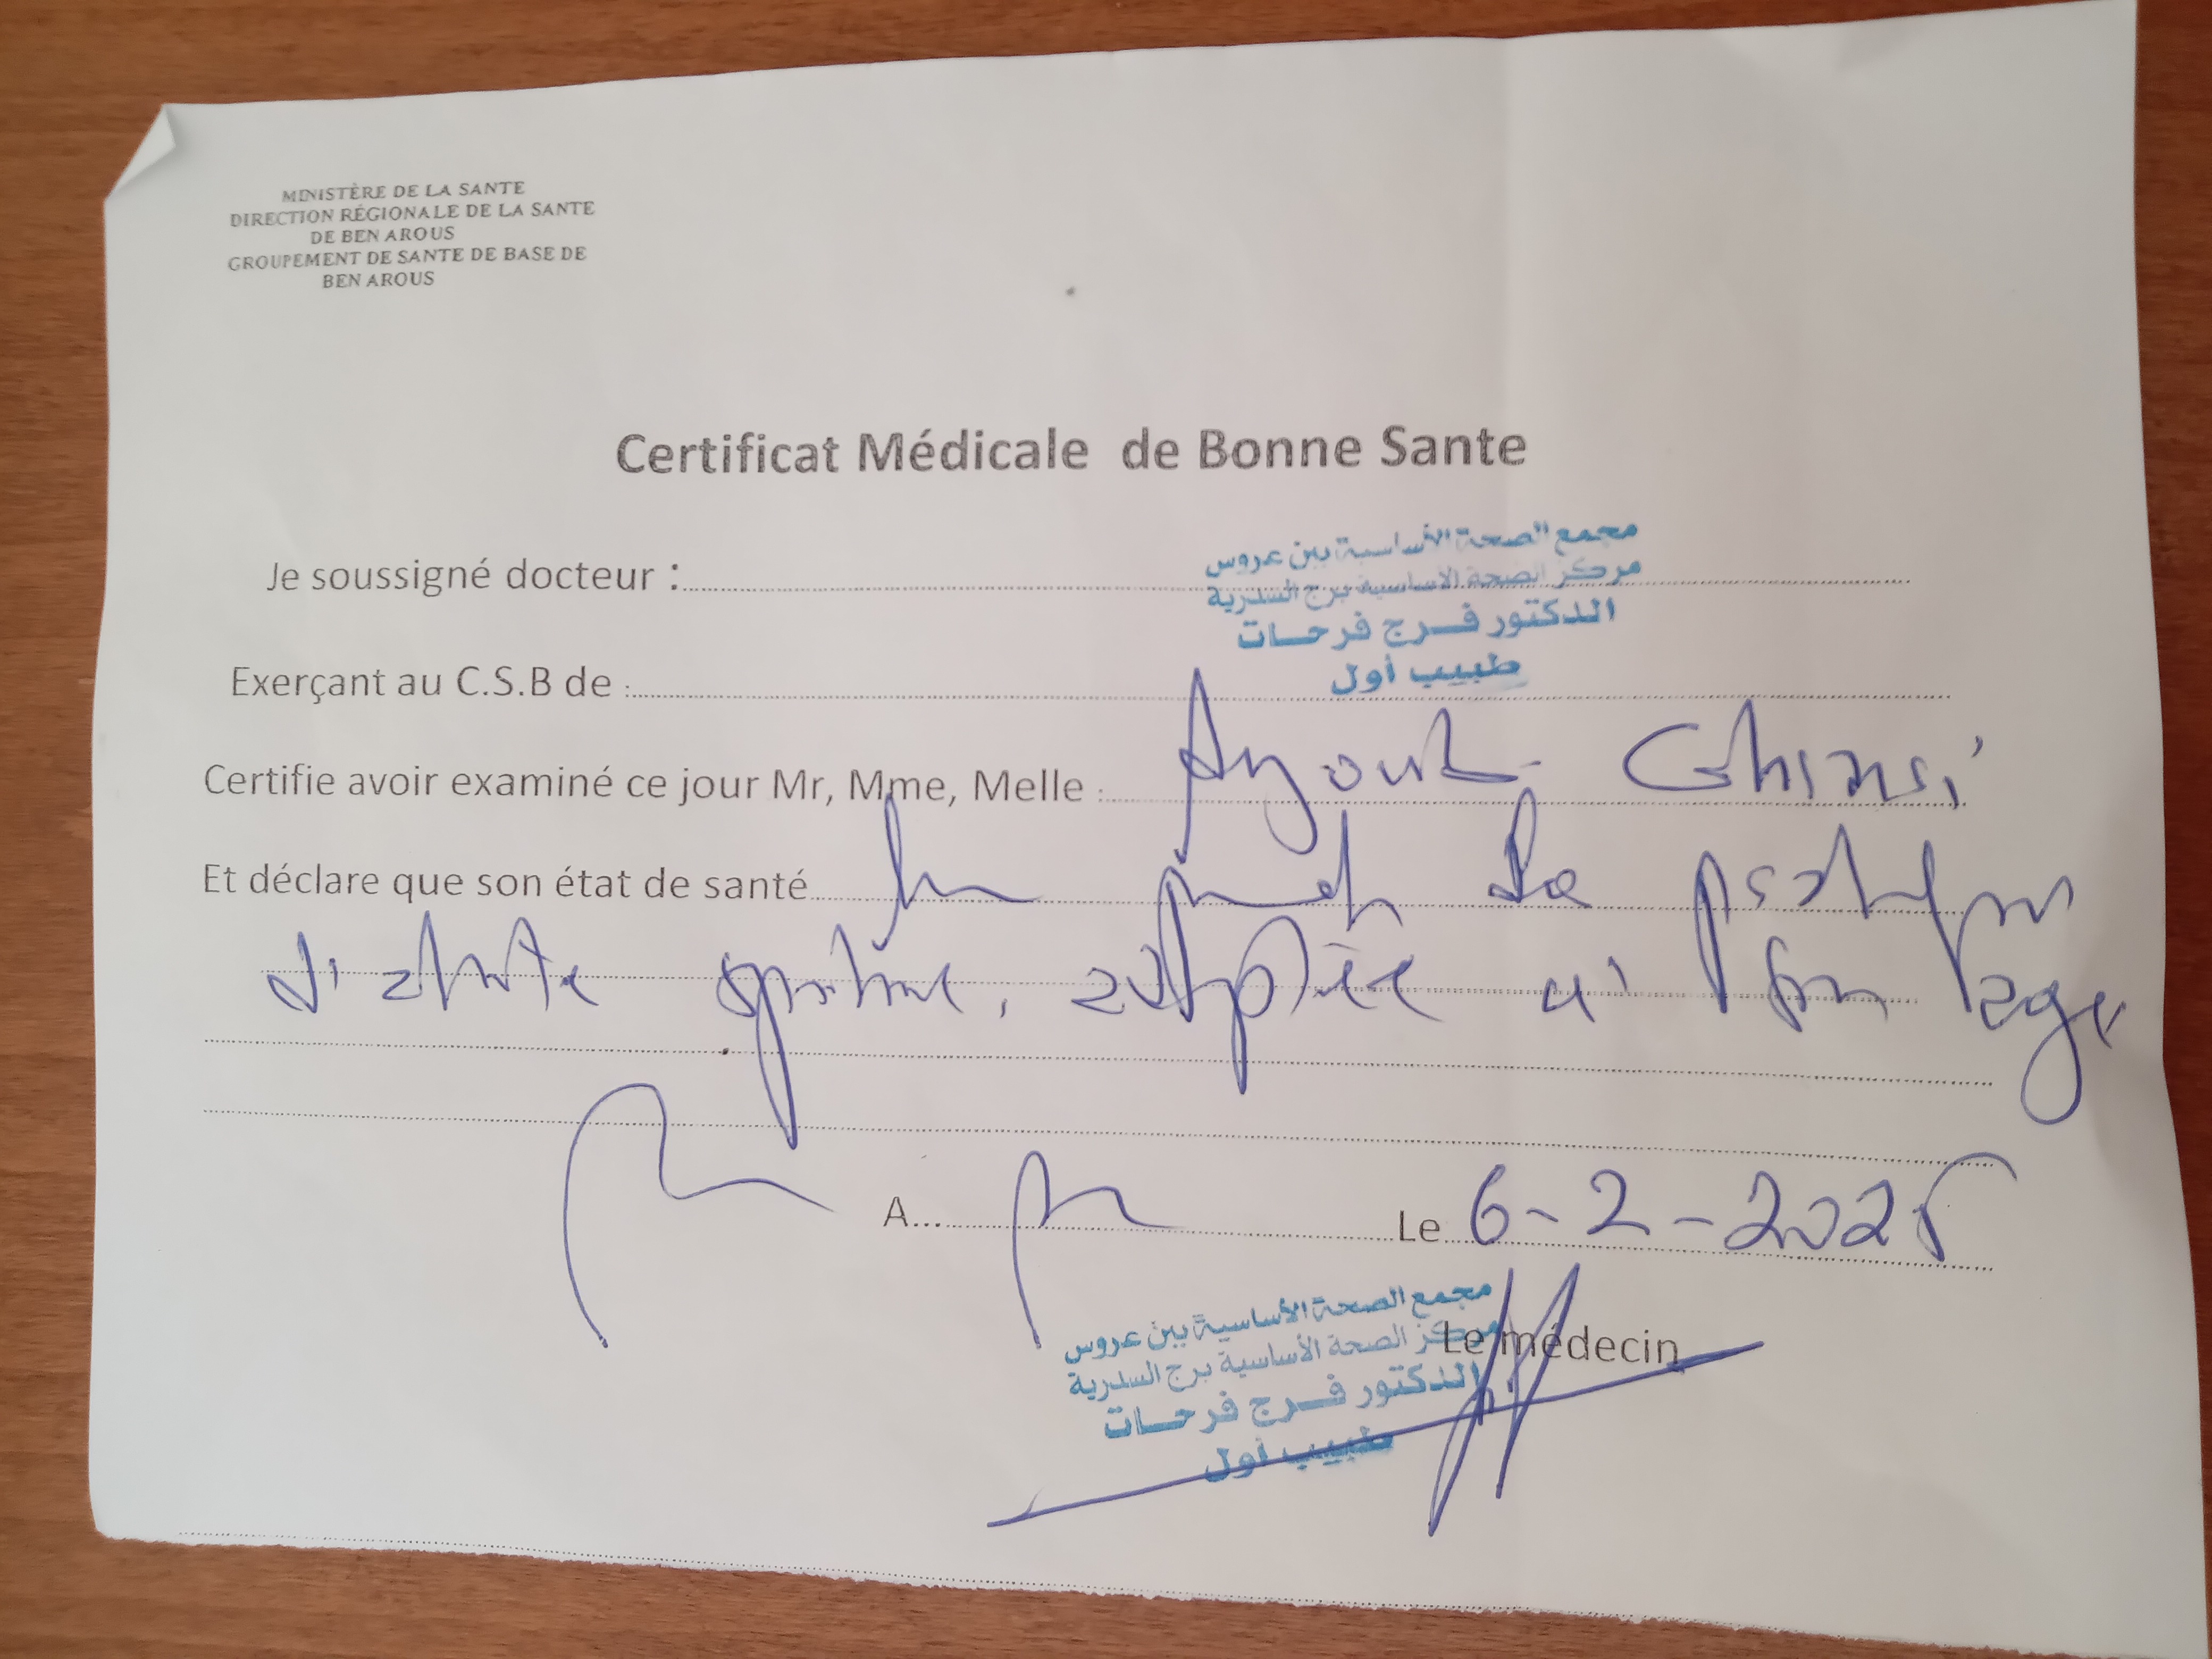 MINISTÈRE DE LA SANTE
DIRECTION RÉGIONALE DE LA SANTE
DE BEN AROUS
GROUPEMENT DE SANTE DE BASE DE
BEN AROUS
Certificat Médicale de Bonne Sante
مجمع الصحة الأساسية ببن عروس
Je soussigné docteur :
مركز الصحة الأساسية برج السدرية
الدكتور فرج فرحات
طبيب أول
Exerçant au C.S.B de :
Certifie avoir examiné ce jour Mr, Mme, Melle : Ayoub
Et déclare que son état de santé la
sportive, adaptée à son age
A... Le 6-2-2025
مجمع الصحة الأساسية ببن عروس
مركز الصحة الأساسية برج السدرية
Le médecin
الدكتور فرج فرحات
طبيب أول